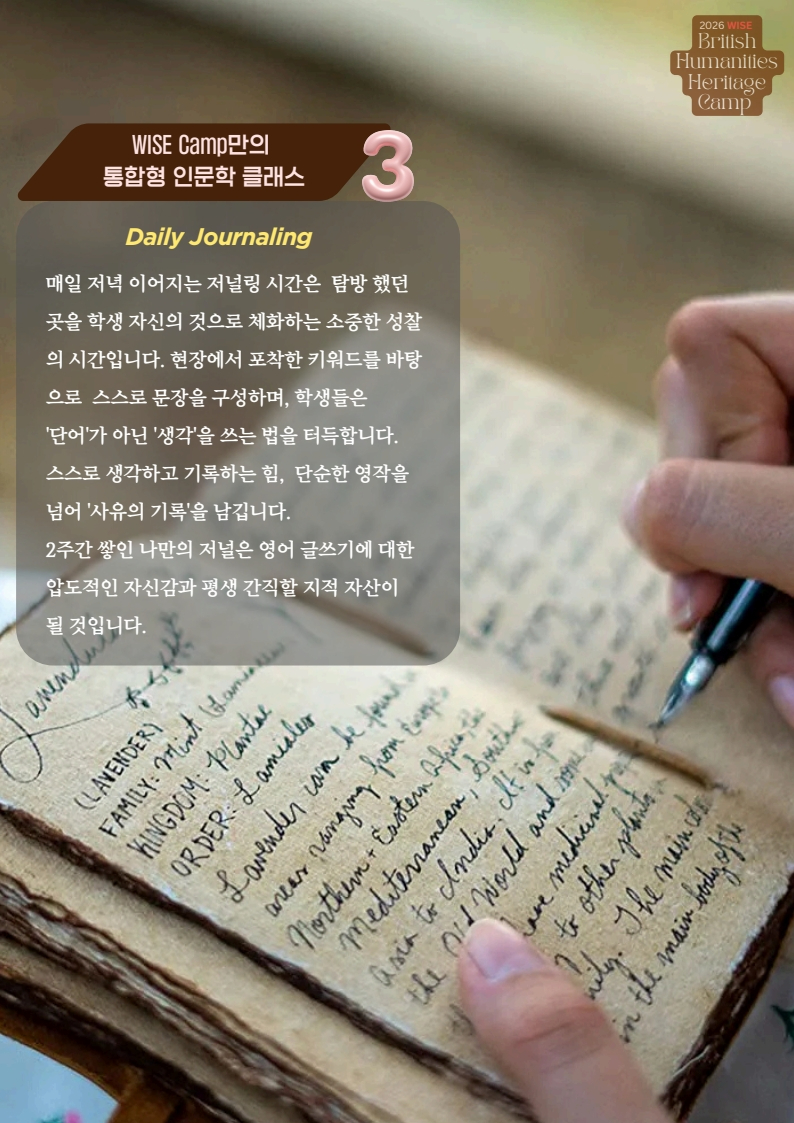 2026 WISE
British
Humanities
Heritage
Camp
WISE Camp만의
통합형 인문학 클래스
3
Daily Journaling
매일 저녁 이어지는 저널링 시간은 탐방 했던
곳을 학생 자신의 것으로 체화하는 소중한 성찰
의 시간입니다. 현장에서 포착한 키워드를 바탕
으로 스스로 문장을 구성하며, 학생들은
'단어'가 아닌 '생각'을 쓰는 법을 터득합니다.
스스로 생각하고 기록하는 힘, 단순한 영작을
넘어 '사유의 기록'을 남깁니다.
2주간 쌓인 나만의 저널은 영어 글쓰기에 대한
압도적인 자신감과 평생 간직할 지적 자산이
될 것입니다.
(LAVENDER)
FAMILY: Mint
KINGDOM: Plantae
ORDER: Lamiales
Lavender can be found
areas ranging from Europe
Northern + Eastern Africa, the
Mediterranean, South
Asia to India. It is
the Old World and some
have medicinal
to other plants
The main
in the main body of the